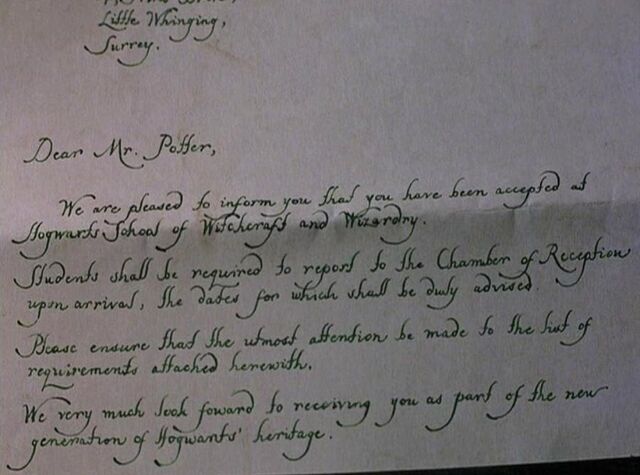 Little Whinging,
Surrey.
Dear Mr. Potter,
We are pleased to inform you that you have been accepted at
Hogwarts School of Witchcraft and Wizardry.
Students shall be required to report to the Chamber of Reception
upon arrival, the dates for which shall be duly advised.
Please ensure that the utmost attention be made to the list of
requirements attached herewith.
We very much look foward to receiving you as part of the new
generation of Hogwarts' heritage.